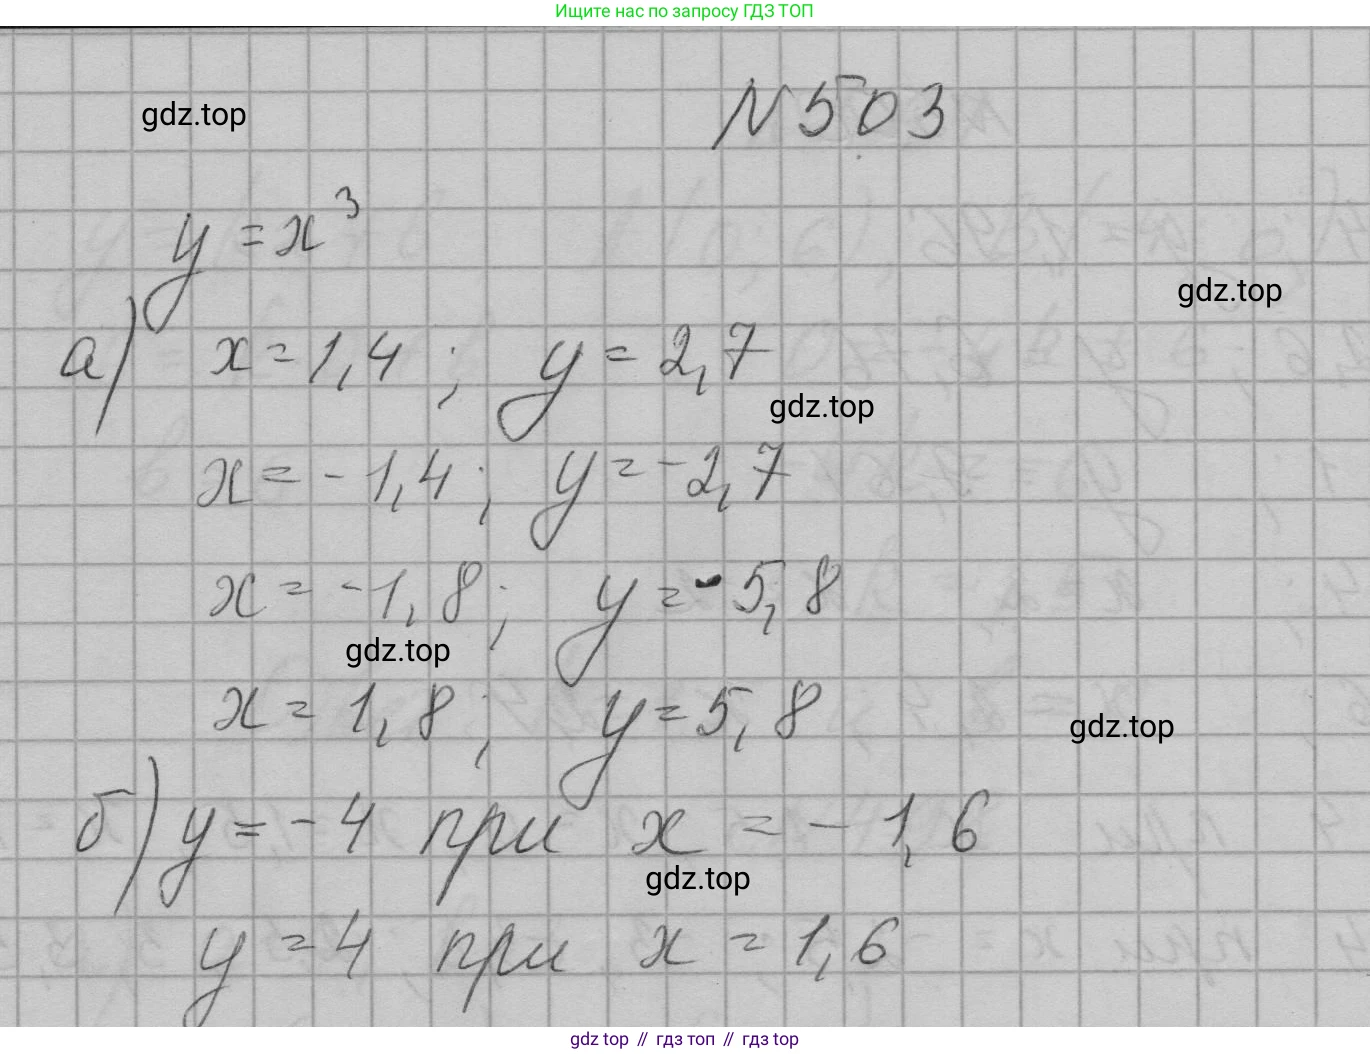 Ищите нас по запросу ГДЗ ТОП
gdz.top
N 503
y = x³
gdz.top
а) x = 1,4 ; y = 2,7
gdz.top
x = - 1,4 ; y = - 2,7
x = - 1,8 ; y = - 5,8
gdz.top
x = 1,8 ; y = 5,8
gdz.top
б) y = - 4 при x = - 1,6
gdz.top
y = 4 при x = 1,6
gdz top // гдз топ // gdz top